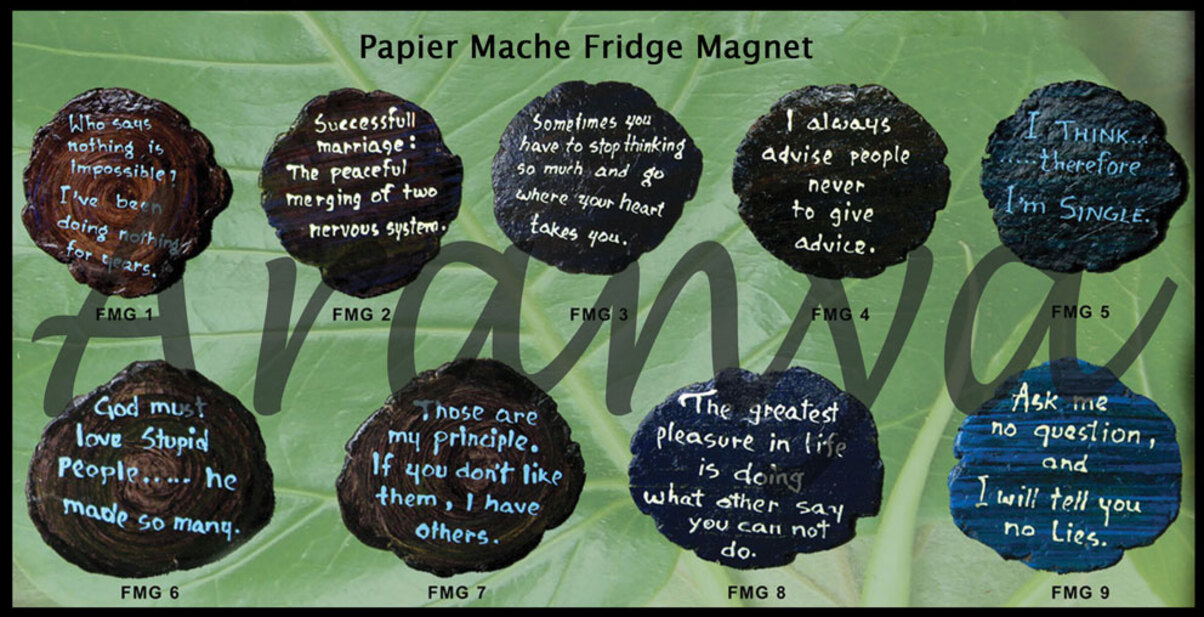 Papier Mache Fridge Magnet
Who says
nothing is
impossible?
I've been
doing nothing
for years.
FMG 1
Successfull
marriage:
The peaceful
merging of two
nervous system.
FMG 2
Sometimes you
have to stop thinking
so much and go
where your heart
takes you.
FMG 3
I always
advise people
never
to give
advice.
FMG 4
I THINK...
.....therefore
I'm SINGLE.
FMG 5
God must
love Stupid
People..... he
made so many.
FMG 6
Those are
my principle.
If you don't like
them, I have
others.
FMG 7
The greatest
pleasure in life
is doing
what other say
you can not
do.
FMG 8
Ask me
no question,
and
I will tell you
no Lies.
FMG 9
Aranya